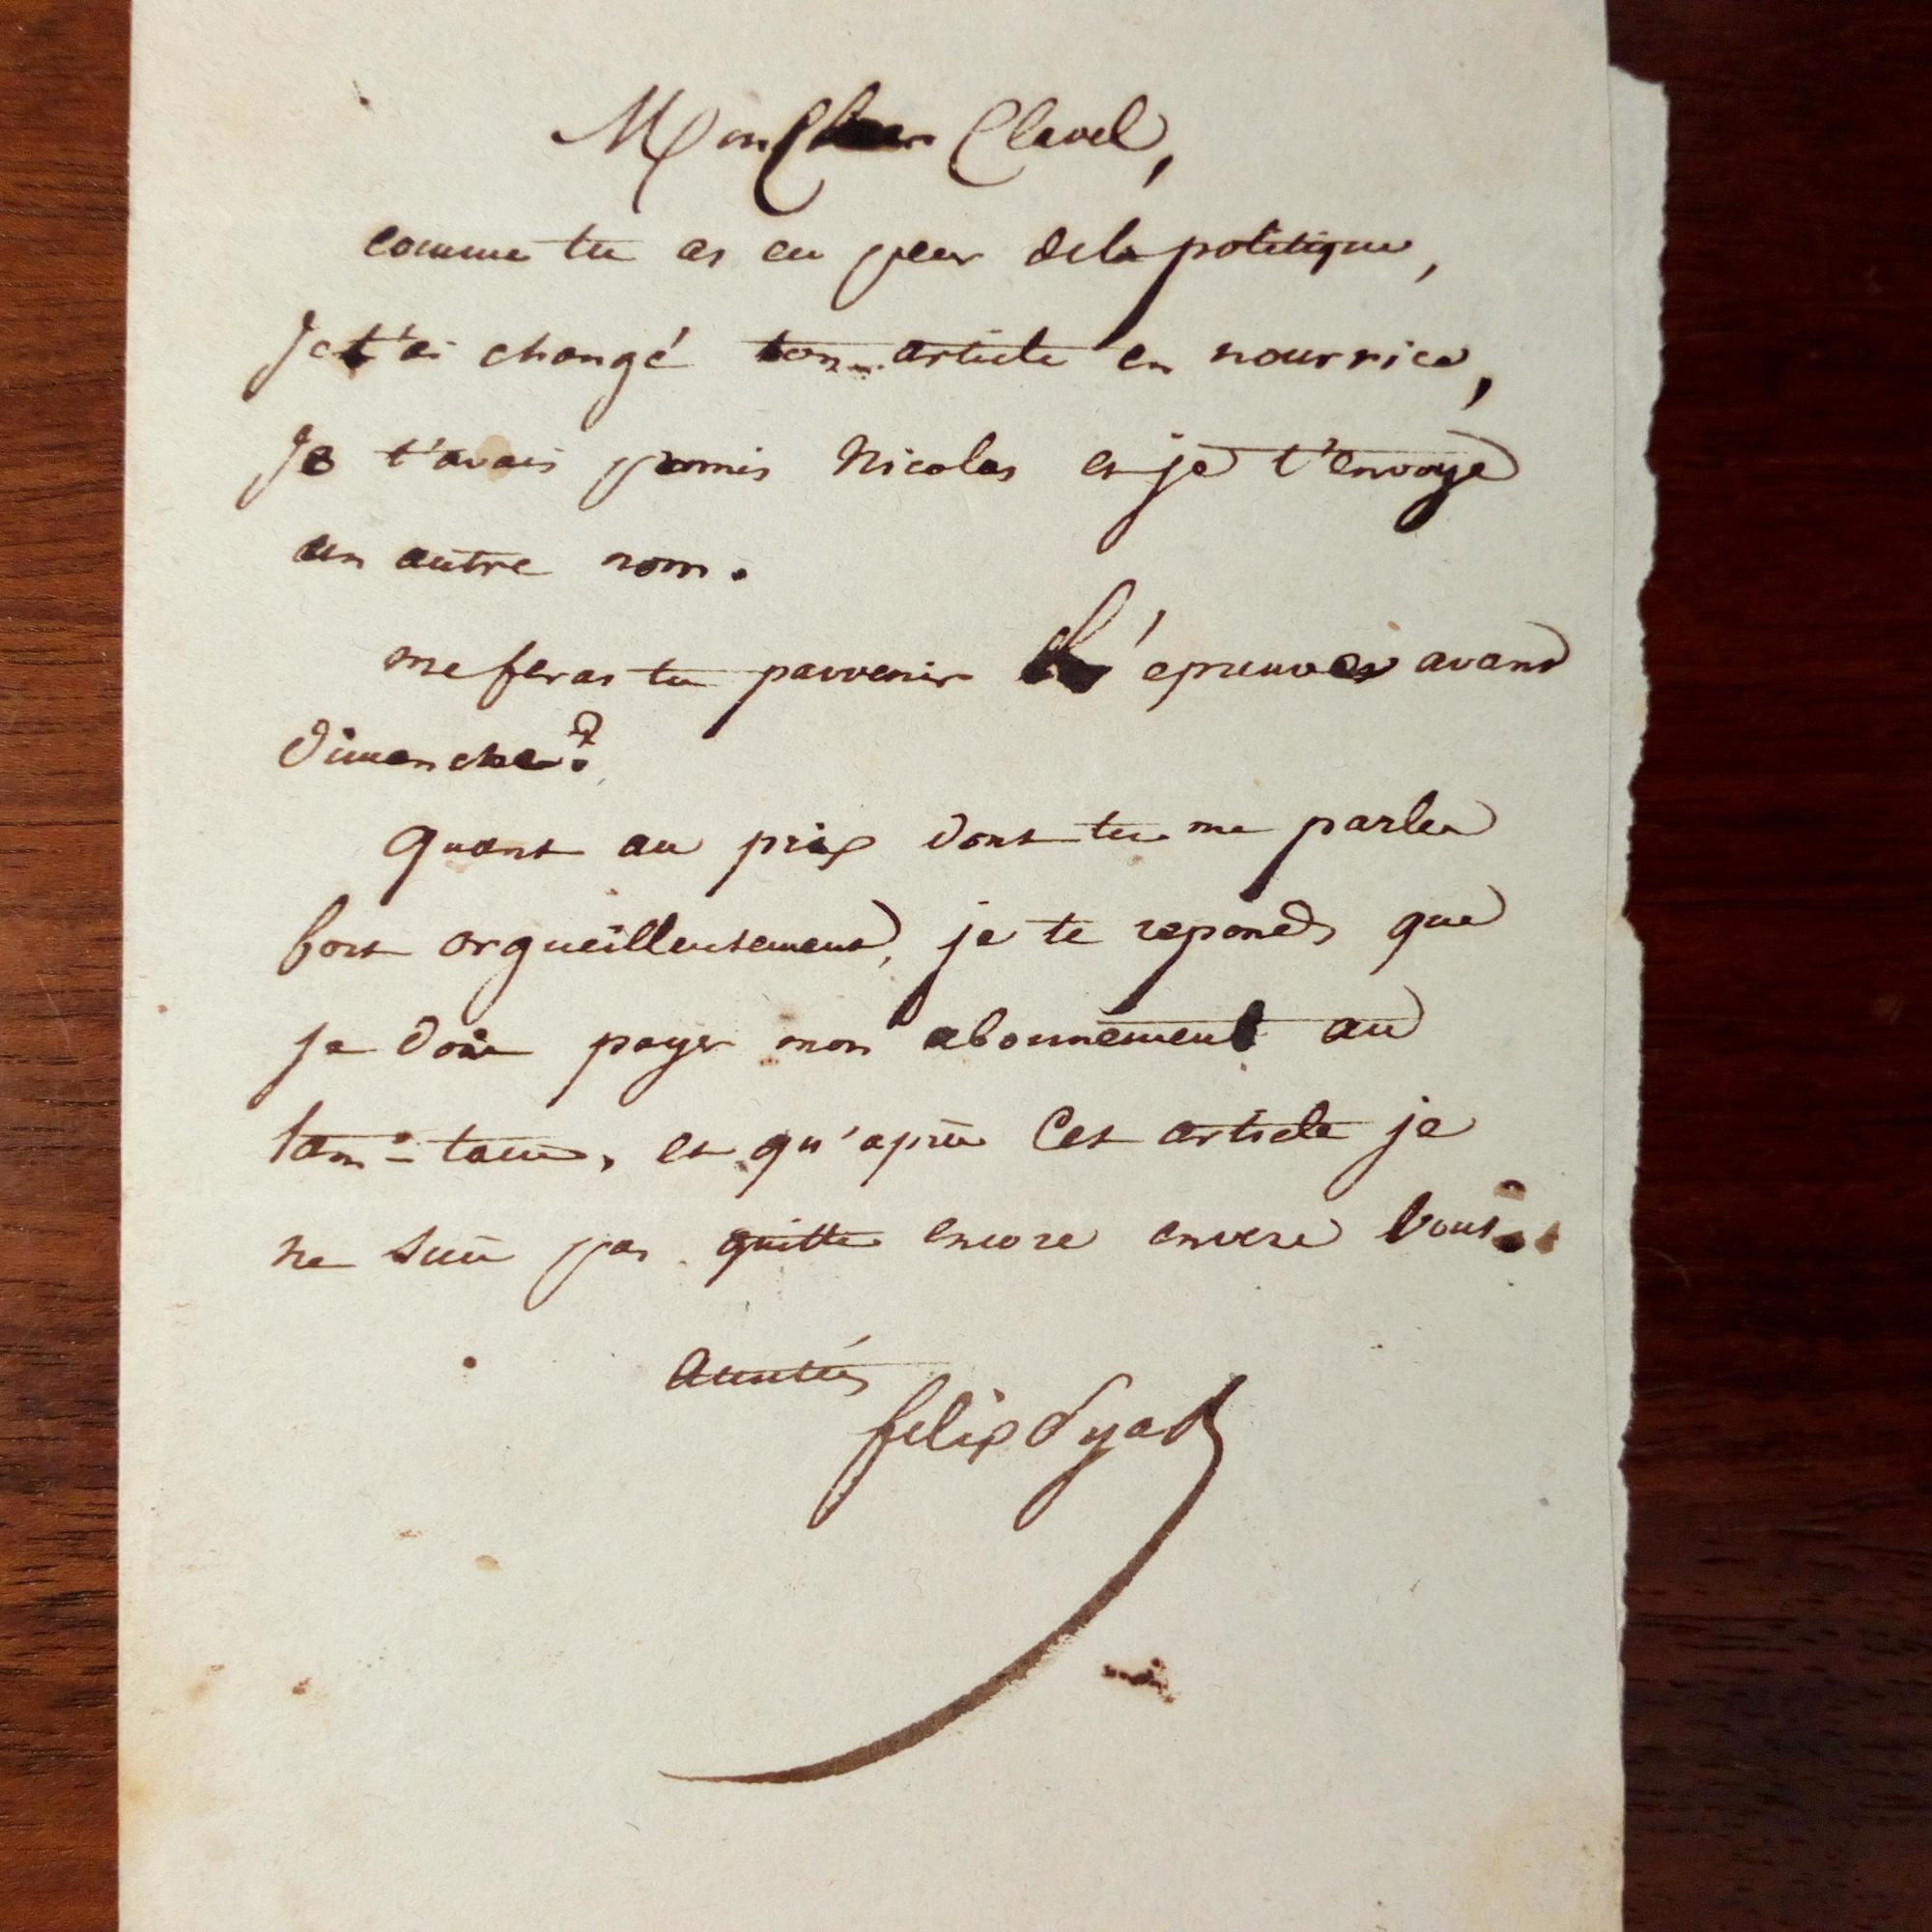 Mon Cher Clavel,
comme tu as eu peur de la politique,
Je t'ai changé ton article en nourrice,
Je t'avais promis Nicolas et je t'envoye
un autre nom.
me feras tu parvenir l'epreuve avant
Dimanche?
Quant au prix dont tu me parles
fort orgueilleusement, je te reponds que
je dois payer mon abonnement au
tam-tam, et qu'après cet article je
ne suis pas quitte encore envers vous.
Amitiés
felix Pyat